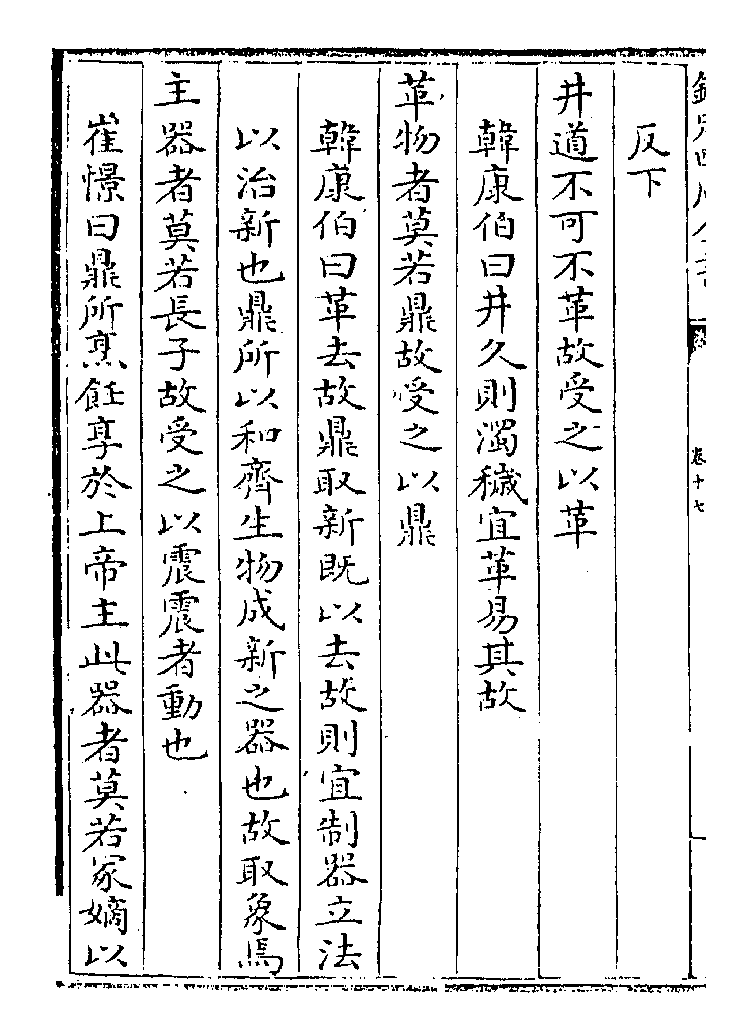 反下
井道不可不革故受之以革
韓康伯曰井久則濁穢宜革易其故
革物者莫若鼎故受之以鼎
韓康伯曰革去故鼎取新既以去故則宜制器立法
以治新也鼎所以和齊生物成新之器也故取象焉
主器者莫若長子故受之以震震者動也
崔憬曰鼎所烹飪享於上帝主此器者莫若冢嫡以
卷十七